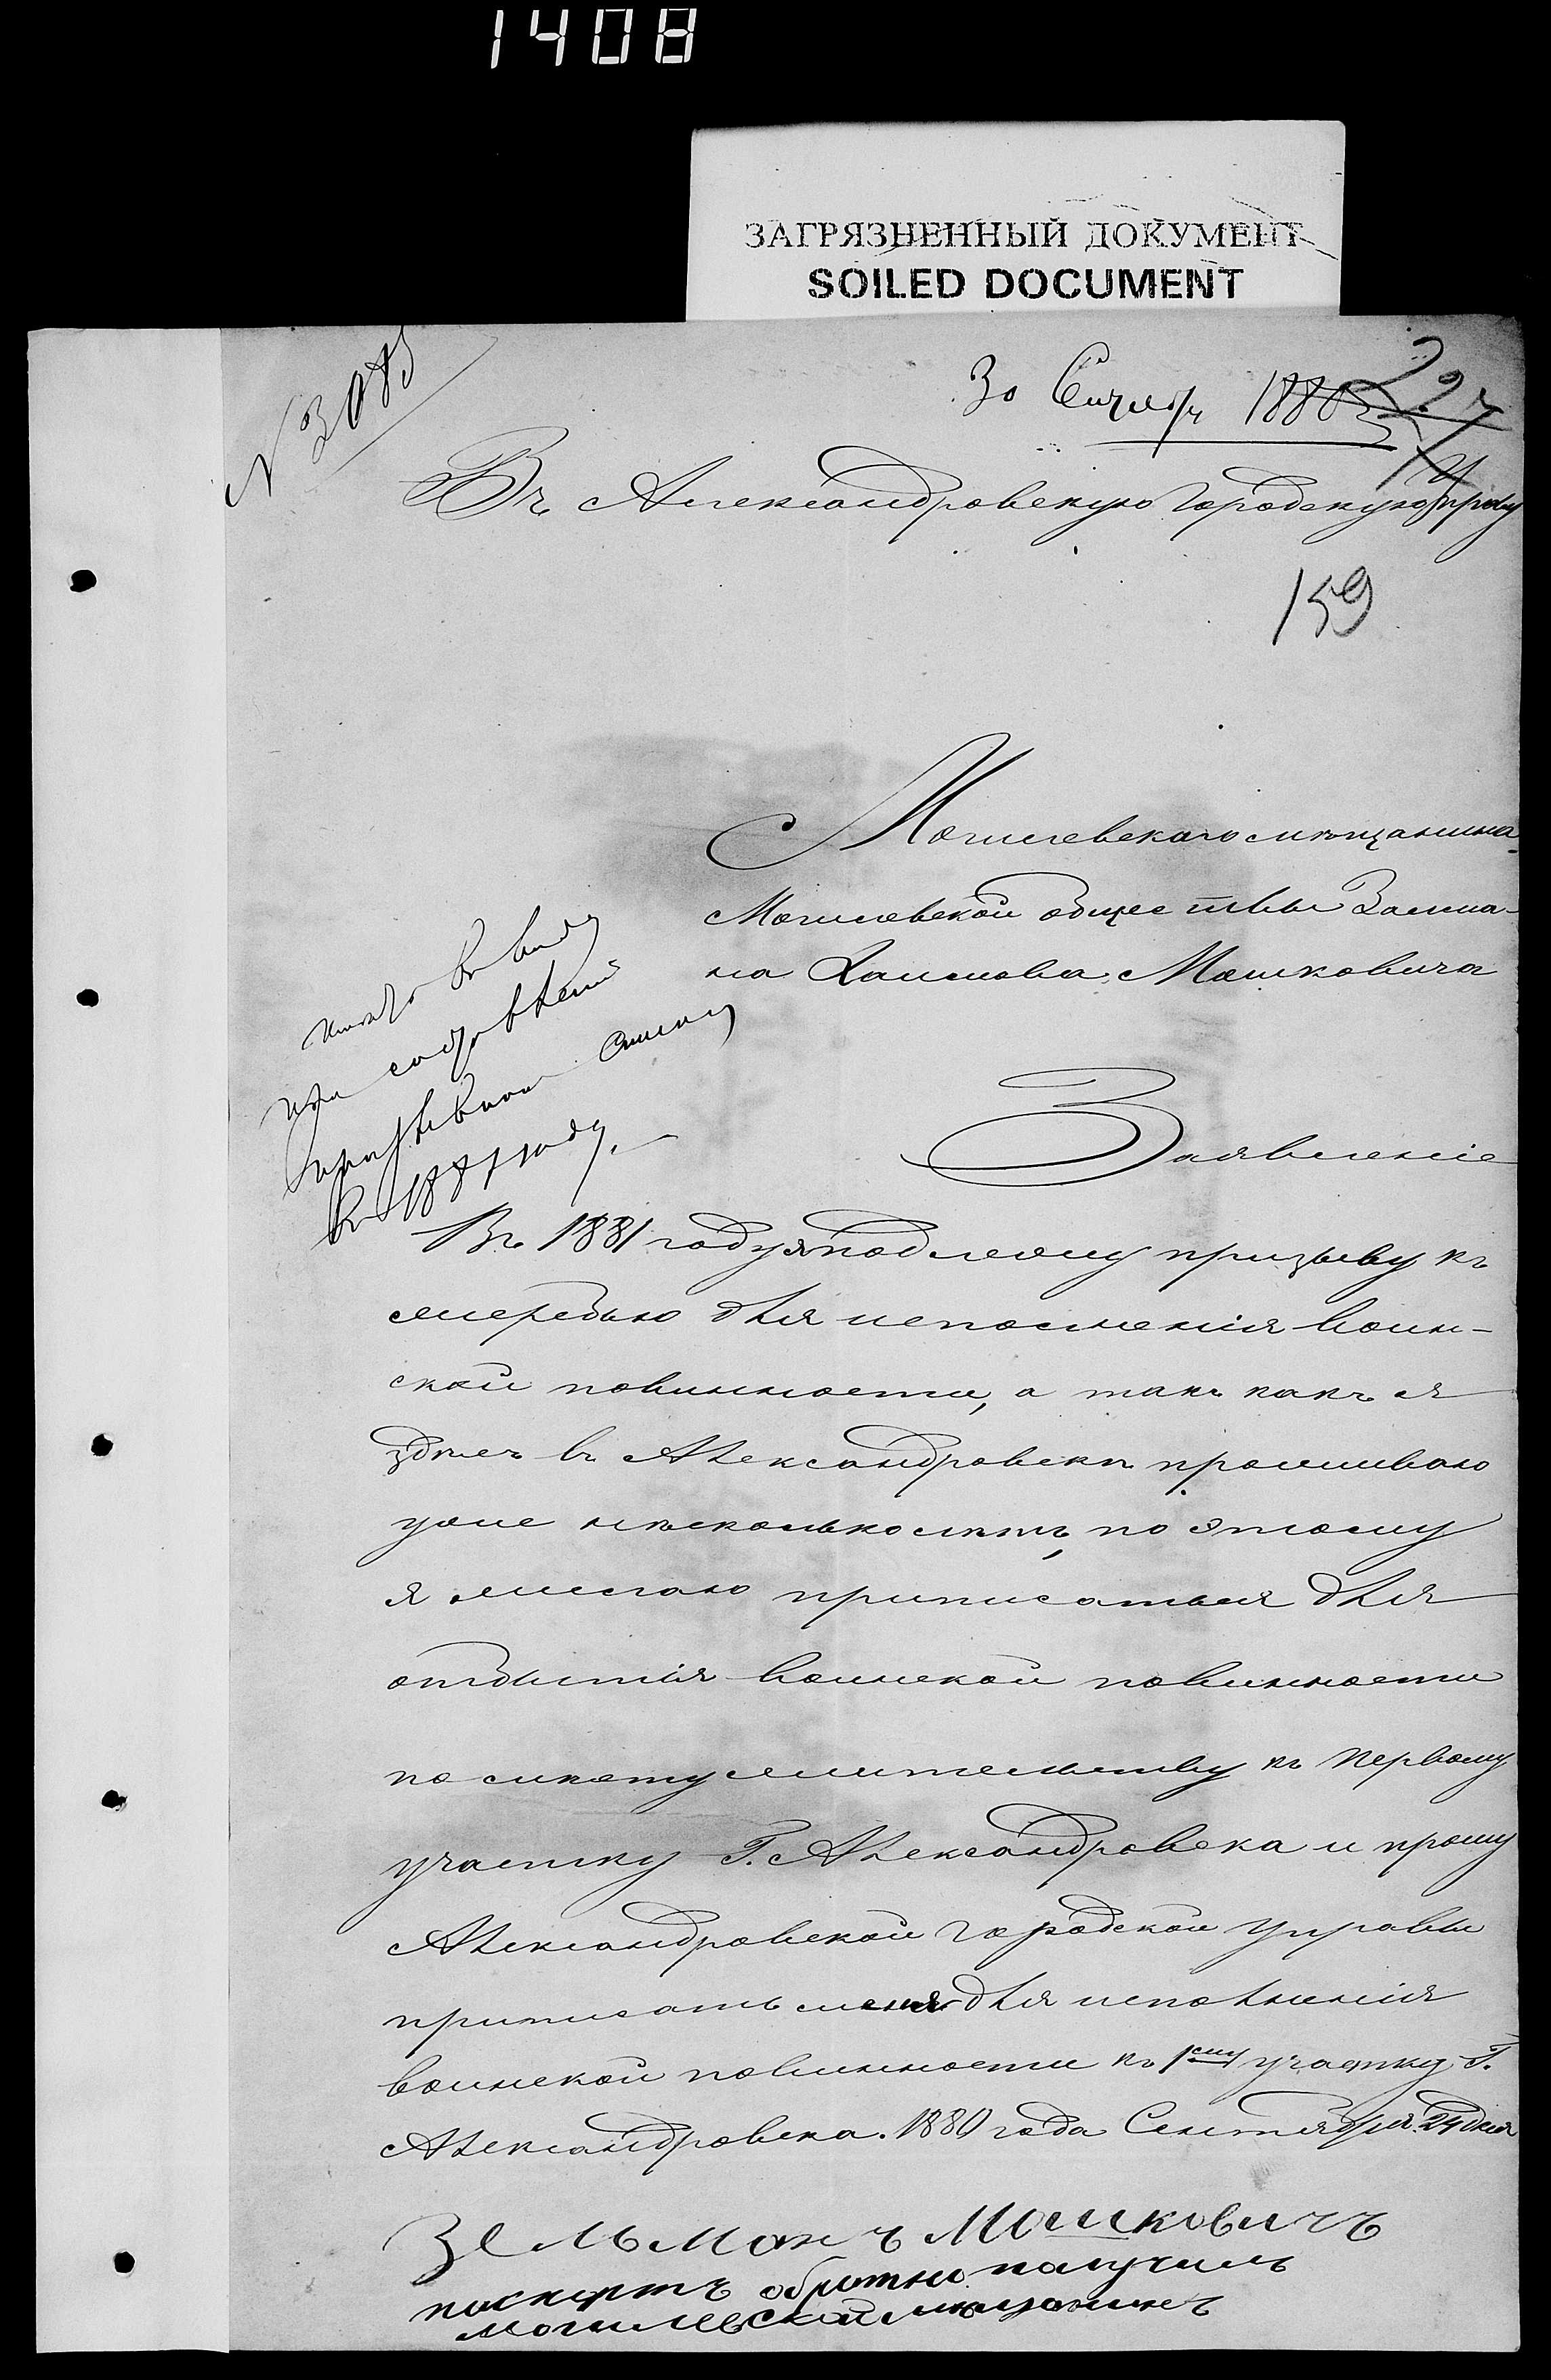 1408
ЗАГРЯЗНЕННЫЙ ДОКУМЕНТ
SOILED DOCUMENT
N 3085
30 Сентября 1880
227
Въ Александровскую городскую Управу
159
Могилевскаго мѣщанина
Могилевской общес тьвы Залма-
на Хаимова Мошковича
имѣть въ виду
при составленіи
призывного списка
къ 1881 году.
Заявленіе
Въ 1881 году я подлежу призыву къ
жеребью для исполненія воин-
ской повинности, а такъ какъ я
здѣсь въ Александровскѣ проживаю
уже нѣсколько лѣтъ, по этому
я желаю приписаться для
отбытія воинской повинности
по мѣсту жительству къ первому
участку Г. Александровска и прошу
Александровской городской управы
приписать меня для исполненія
воинской повинности къ 1ому участку Г.
Александровска. 1880 года Сентября 24 дня
Зельманъ Мошковичъ
паспортъ обратно получилъ
могилевской мѣщанинъ